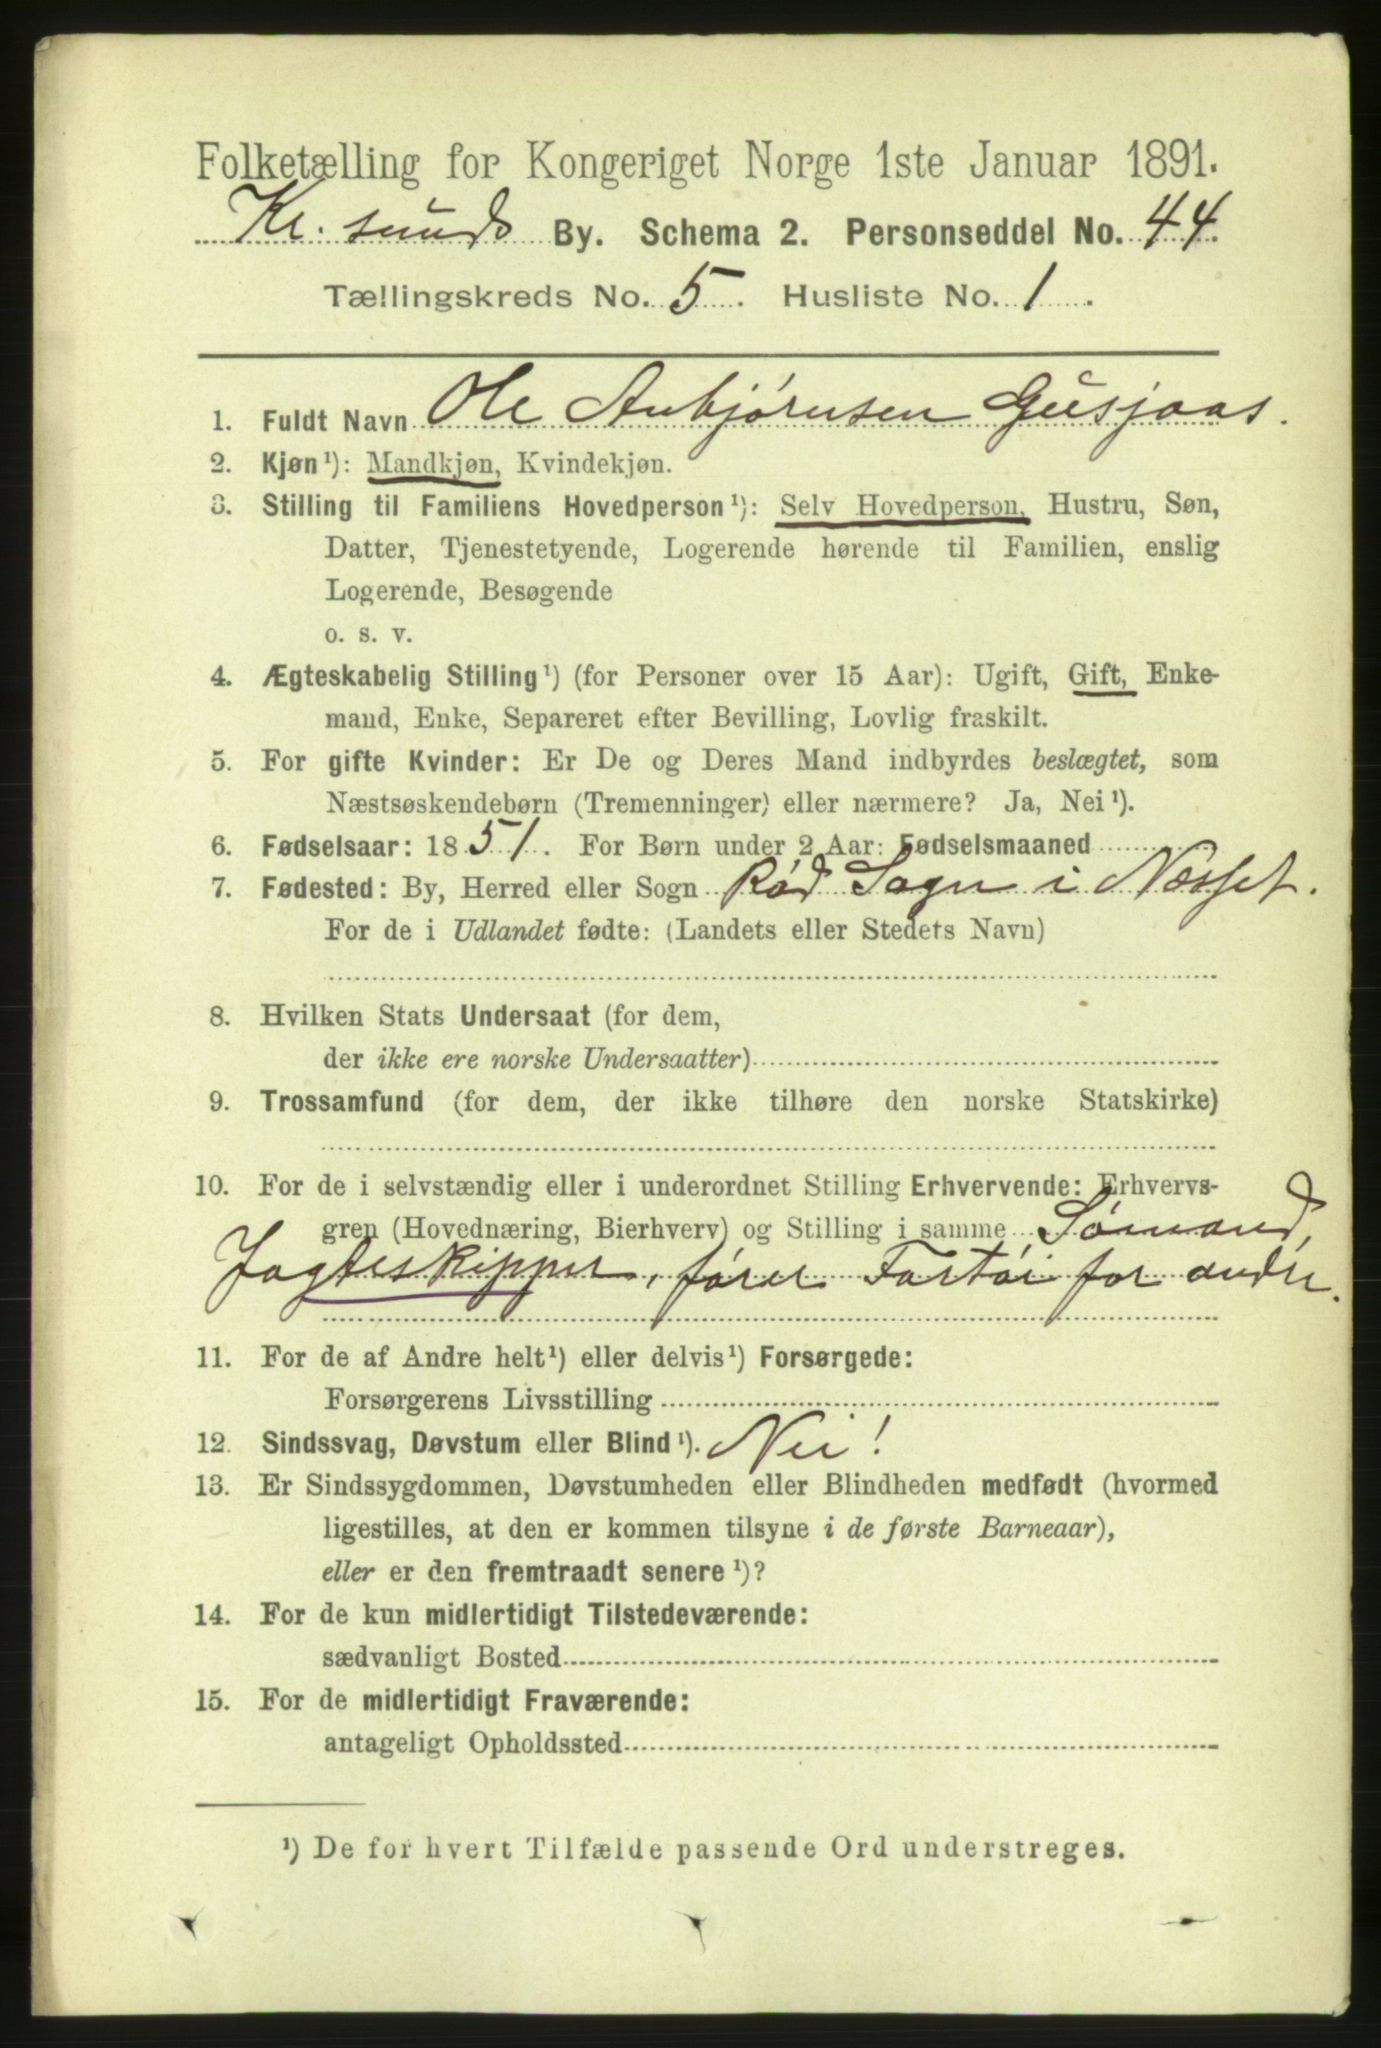 Folketælling for Kongeriget Norge 1ste Januar 1891.
Kr. sunds By. Schema 2. Personseddel No. 44.
Tællingskreds No. 5. Husliste No. 1.
1. Fuldt Navn Ole Anbjørnsen Gusjaas.
2. Kjøn¹): Mandkjøn, Kvindekjøn.
3. Stilling til Familiens Hovedperson¹): Selv Hovedperson, Hustru, Søn,
Datter, Tjenestetyende, Logerende hørende til Familien, enslig
Logerende, Besøgende
o. s. v.
4. Ægteskabelig Stilling¹) (for Personer over 15 Aar): Ugift, Gift, Enke-
mand, Enke, Separeret efter Bevilling, Lovlig fraskilt.
5. For gifte Kvinder: Er De og Deres Mand indbyrdes beslægtet, som
Næstsøskendebørn (Tremenninger) eller nærmere? Ja, Nei¹).
6. Fødselsaar: 1851. For Børn under 2 Aar: Fødselsmaaned
7. Fødested: By, Herred eller Sogn Rød Sogn i Næsset.
For de i Udlandet fødte: (Landets eller Stedets Navn)
8. Hvilken Stats Undersaat (for dem,
der ikke ere norske Undersaatter)
9. Trossamfund (for dem, der ikke tilhøre den norske Statskirke)
10. For de i selvstændig eller i underordnet Stilling Erhvervende: Erhvervs-
gren (Hovednæring, Bierhverv) og Stilling i samme Sømand,
Jagteskipper, fører Fartøi for andre.
11. For de af Andre helt¹) eller delvis¹) Forsørgede:
Forsørgerens Livsstilling
12. Sindssvag, Døvstum eller Blind¹). Nei!
13. Er Sindssygdommen, Døvstumheden eller Blindheden medfødt (hvormed
ligestilles, at den er kommen tilsyne i de første Barneaar),
eller er den fremtraadt senere¹)?
14. For de kun midlertidigt Tilstedeværende:
sædvanligt Bosted
15. For de midlertidigt Fraværende:
antageligt Opholdssted
¹) De for hvert Tilfælde passende Ord understreges.